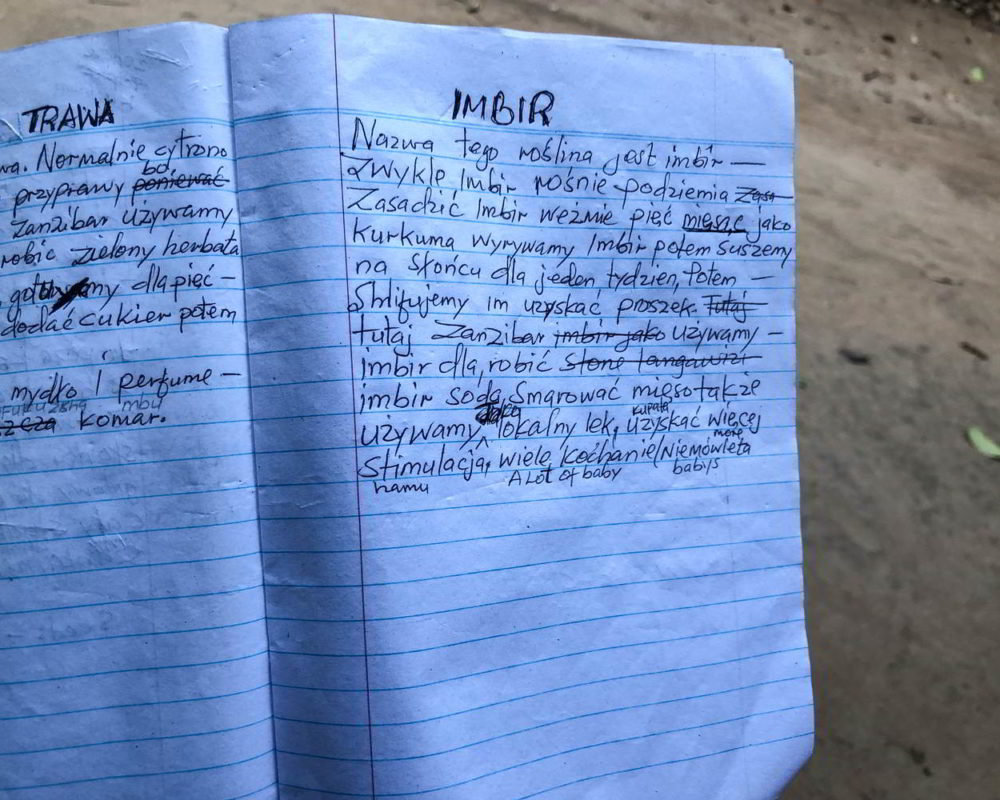 TRAWA
wa. Normalnie cytrono
bo,
przyprawy poniewać
Zanzibar używamy
robić zielony herbata
gotujemy dla pięć -
dodać cukier potem
mydło i perfume -
mbu
komar.
IMBIR
Nazwa tego roślina jest imbir —
Zwykle Imbir rośnie podziemia Zasa
Zasadzić Imbir weźmie pięć miesąc jako
kurkuma wyrywamy Imbir potem suszemy
na słońcu dla jeden tydzien, Potem —
Shlifujemy im uzyskać proszek. Tutaj
tutaj Zanzibar imbir jako używamy —
imbir dla, robić Stone tangawizi
imbir soda, Smarować mięso także
używamy jako lokalny lek, uzyskać więcej
kupata more
Stimulacja, wiele kochanie/Niemówleta
hamu A Lot of baby babys